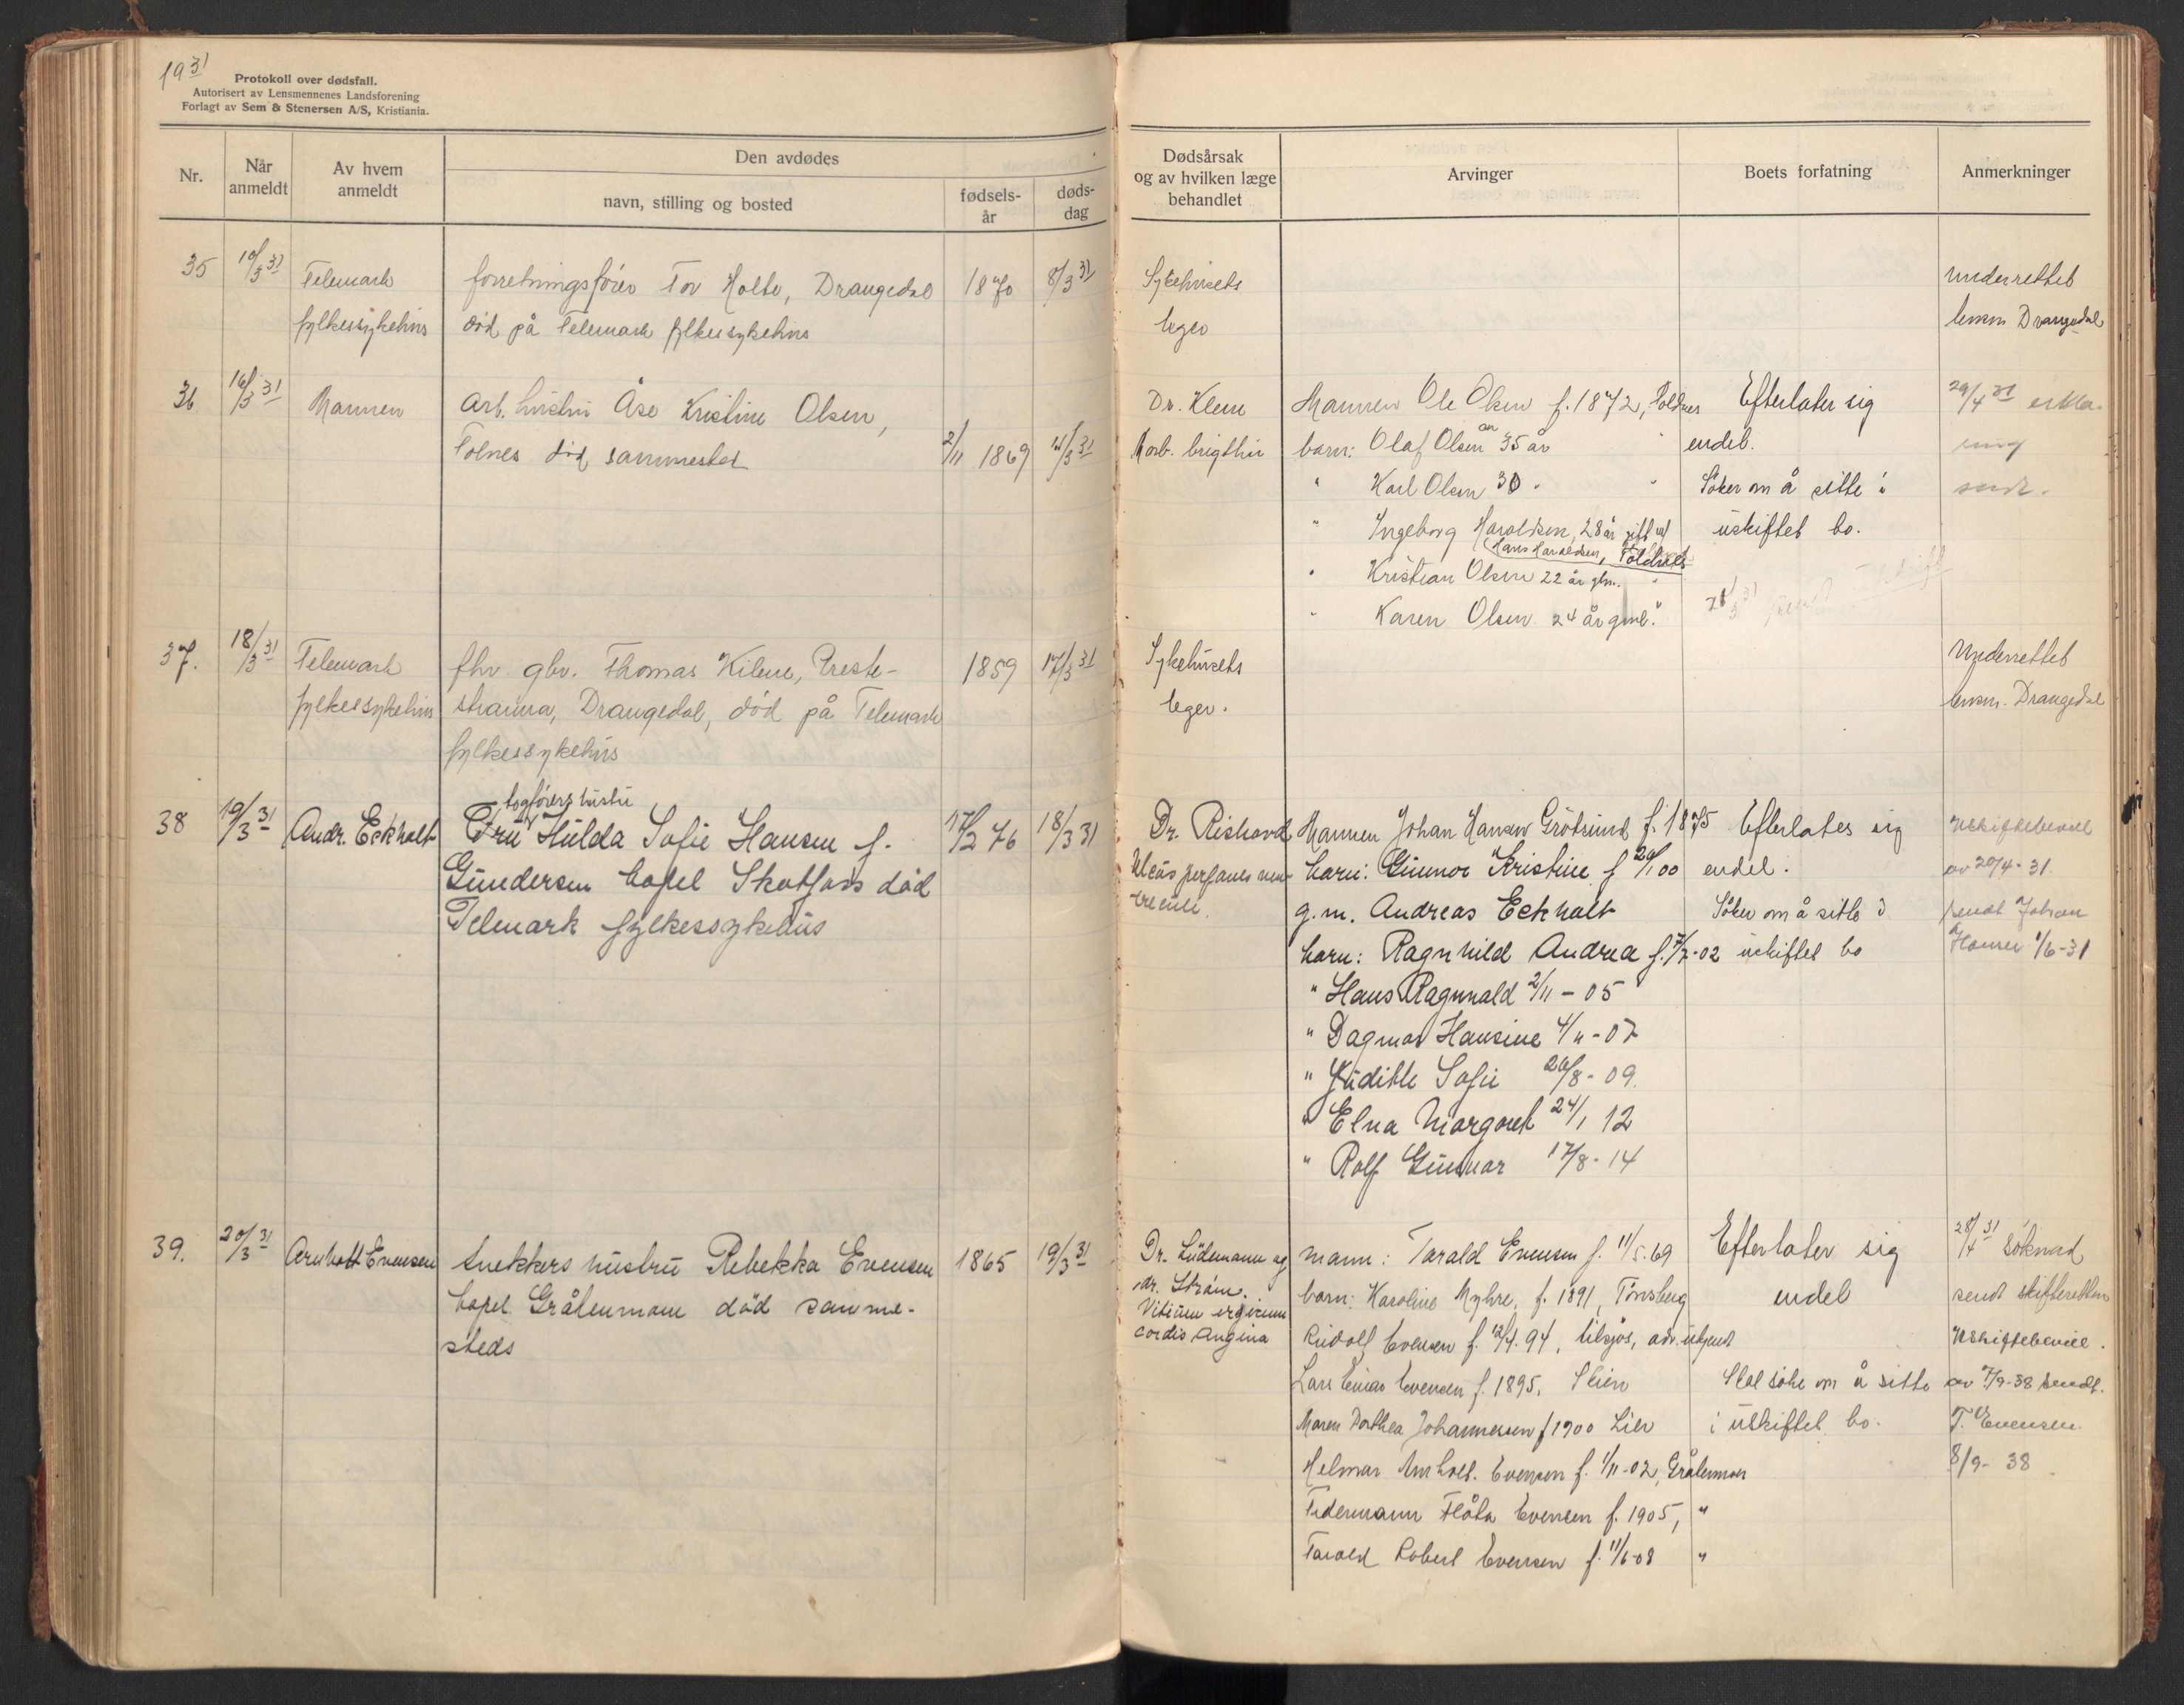 1931
Protokoll over dødsfall.
Autorisert av Lensmennenes Landsforening
Forlagt av Sem & Stenersen A/S, Kristiania.
Nr.
Når anmeldt
Av hvem anmeldt
Den avdødes
navn, stilling og bosted
fødselsår
dødsdag
35 10/3 31 Telemark forretningsfører Tov Holte, Drangedal 1870 8/3 31
fylkessykehus død på Telemark fylkessykehus
36 16/3 31 Mannen Arb. hustru Åse Kristine Olsen,
Folnes død sammested 2/11 1869 /3 31
37. 18/3 31 Telemark fhv. gbr. Thomas Kilene, Preste- 1859 17/3 31
fylkessykehus stranna, Drangedal, død på Telemark
fylkessykehus
togførers hustru
38 19/3 31 Andr. Eckholt Fru Hulda Sofie Hansen f. 17/2 76 18/3 31
Gundersen bopel Skotfoss død
Telemark fylkessykehus
39. 20/3 31 Arnholt Evensen snekkers hustru Rebekka Evensen 1865 19/3 31
bopel Gråtenmoen død samme-
steds
Dødsårsak
og av hvilken læge
behandlet
Arvinger
Boets forfatning
Anmerkninger
Sykehusets underrettet
leger lensm Drangedal
Dr. Klem Mannen Ole Olsen f. 1872, Efterlater sig 29/4 31 erklæ-
Morb. brigthii barn: Olaf Olsen 35 år " endel. ring
" Karl Olsen 30 " " Søker om å sitte i sendt.
" Ingeborg Haraldsen, 28 år gift m/ uskiftet bo.
Hans Haraldsen,
" Kristian Olsen 22 år glm. "
" Karen Olsen 24 år gml. "
Sykehusets Underrettet
leger. lensm. Drangedal
Dr. Rishovd Mannen Johan Hansen Grötsund f. 1875 Efterlates sig Uskiftebevil
Ulcus perforans ven- barn: Gunnor Kristine f 20/1 00 endel. av 20/4-31.
triculi. g.m. Andreas Eckholt Søker om å sitte i sendt Johan
barn: Ragnhild Andrea f. 7/7-02 uskiftet bo Hansen 1/6-31
" Hans Ragnvald 2/11-05
" Dagmar Hansine 4/11-07
" Judithe Sofie 26/8-09.
" Elna Margaret 24/1 12
" Rolf Gunnar 17/8-14
Dr. Lüdemann og mann: Tarald Evensen f. 11/5.69 Efterlater sig 28/4 31 søknad
dr. Strøm. barn: Karoline Myhre, f. 1891, Tønsberg endel sendt skifteretten
Vitium organicum
cordis Angina Rudolf Evensen f. 12/4. 94, tilsjøs, adr. ukjent Uskiftebevil.
Lars Einar Evensen f. 1895, Skien Skal søke om å sitte av 7/9-38 sendt.
Maren Dorthea Johannessen f 1900 Lier i uskiftet bo. T. Evensen
Helmar Arnholt Evensen f. 1/11-02, Gråtenmoen 8/9-38
Tidemann Flåta Evensen f. 1905, "
Tarald Robert Evensen f. 11/6-08 "